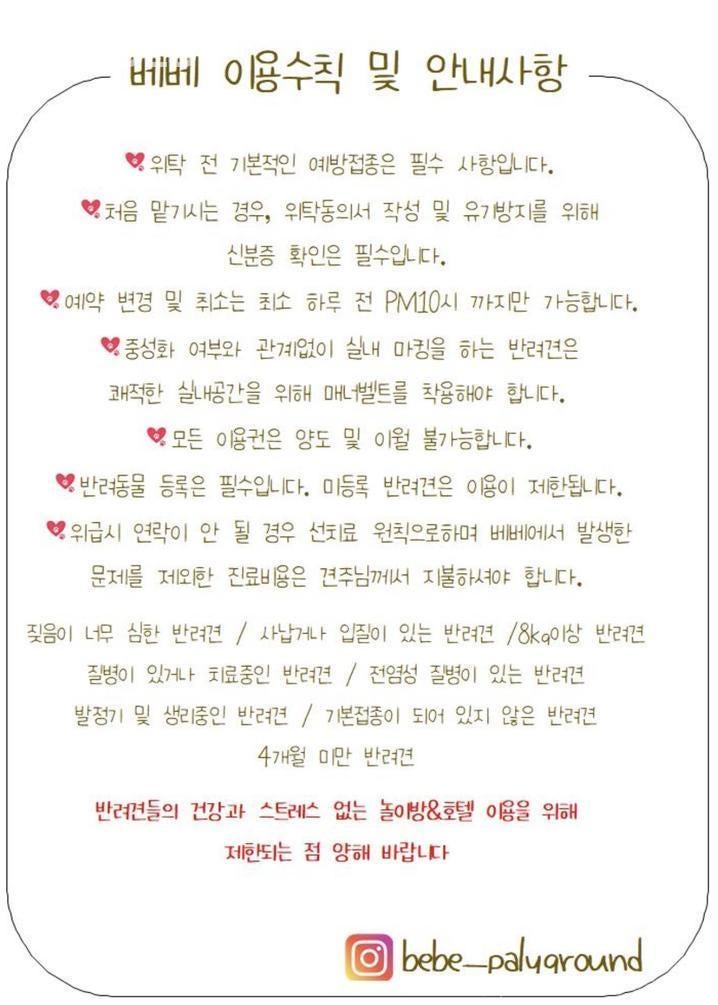 베베 이용수칙 및 안내사항
위탁 전 기본적인 예방접종은 필수 사항입니다.
처음 맡기시는 경우, 위탁동의서 작성 및 유기방지를 위해
신분증 확인은 필수입니다.
예약 변경 및 취소는 최소 하루 전 PM10시 까지만 가능합니다.
중성화 여부와 관계없이 실내 마킹을 하는 반려견은
쾌적한 실내공간을 위해 매너벨트를 착용해야 합니다.
모든 이용권은 양도 및 이월 불가능합니다.
반려동물 등록은 필수입니다. 미등록 반려견은 이용이 제한됩니다.
위급시 연락이 안 될 경우 선치료 원칙으로하며 베베에서 발생한
문제를 제외한 진료비용은 견주님께서 지불하셔야 합니다.
짖음이 너무 심한 반려견 / 사납거나 입질이 있는 반려견 /8kg이상 반려견
질병이 있거나 치료중인 반려견 / 전염성 질병이 있는 반려견
발정기 및 생리중인 반려견 / 기본접종이 되어 있지 않은 반려견
4개월 미만 반려견
반려견들의 건강과 스트레스 없는 놀이방&호텔 이용을 위해
제한되는 점 양해 바랍니다
bebe_palyground